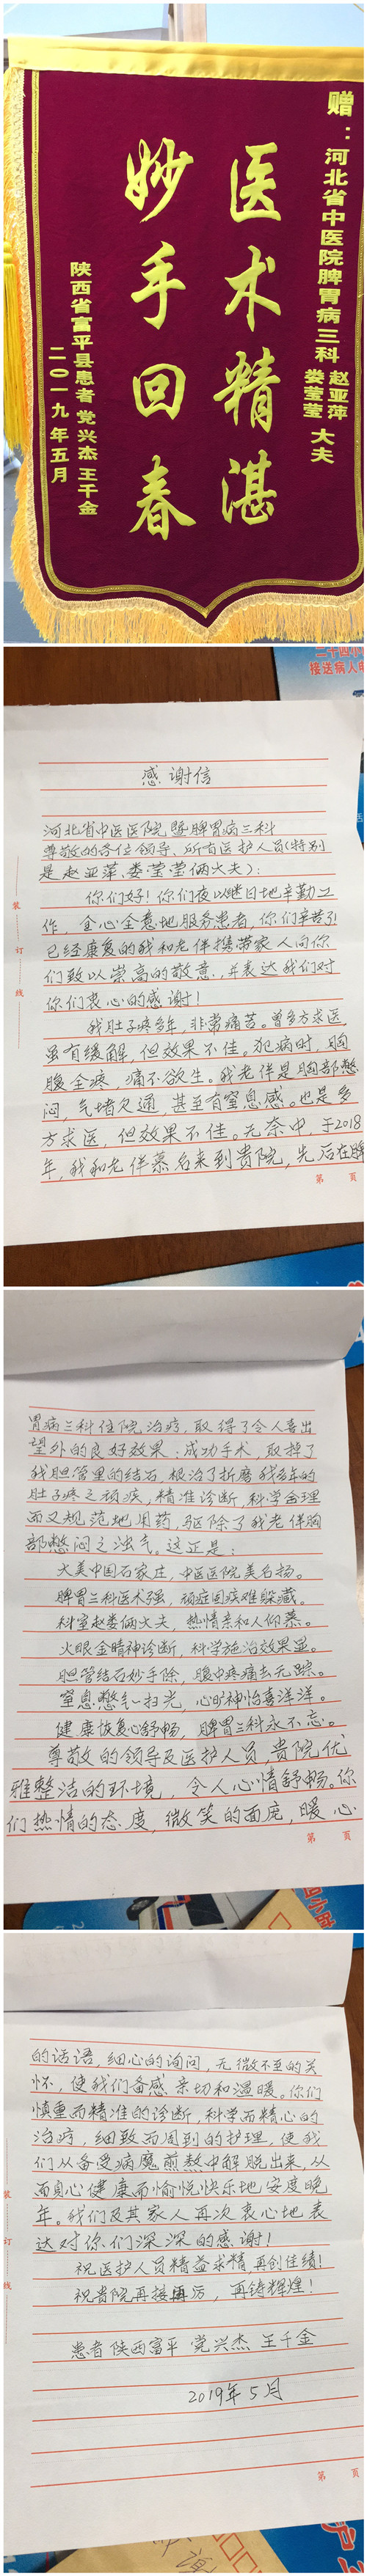 赠：河北省中医院脾胃病三科 赵亚萍 娄莹莹 大夫
医术精湛
妙手回春
陕西省富平县患者 党兴杰 王千金
二〇一九年五月
二十四小
接送病人电
感谢信
河北省中医医院暨脾胃病三科
尊敬的各位领导、所有医护人员(特别
是赵亚萍、娄莹莹俩大夫)：
你们好！你们夜以继日地辛勤工
作，全心全意地服务患者，你们辛苦了！
已经康复的我和老伴携带家人向你
们致以崇高的敬意，并表达我们对
你们衷心的感谢！
我肚子疼多年，非常痛苦。曾多方求医，
虽有缓解，但效果不佳。犯病时，胸
腹全疼，痛不欲生。我老伴是胸部憋
闷，气堵欠通，甚至有窒息感。也是多
方求医，但效果不佳。无奈中，于2018
年，我和老伴慕名来到贵院，先后在脾
装
订
线
第 页
胃病三科住院治疗，取得了令人喜出
望外的良好效果：成功手术，取掉了
我胆管里的结石，根治了折磨我多年的
肚子疼之顽疾，精准诊断，科学合理
而又规范地用药，驱除了我老伴胸
部憋闷之浊气。这正是：
大美中国石家庄，中医医院美名扬。
脾胃三科医术强，顽症固疾难躲藏。
科室赵娄俩大夫，热情亲和人仰慕。
火眼金睛神诊断，科学施治效果显。
胆管结石妙手除，腹中疼痛去无踪。
窒息憋气一扫光，心旷神怡喜洋洋。
健康恢复心舒畅，脾胃三科永不忘。
尊敬的领导及医护人员，贵院优
雅整洁的环境，令人心情舒畅。你
们热情的态度，微笑的面庞，暖心
第 页
的话语，细心的询问，无微不至的关
怀，使我们备感亲切和温暖。你们
慎重而精准的诊断，科学而精心的
治疗，细致而周到的护理，使我
们从备受病魔煎熬中解脱出来，从
而身心健康而愉悦快乐地安度晚
年。我们及其家人再次衷心地表
达对你们深深的感谢！
祝医护人员精益求精，再创佳绩！
祝贵院再接再厉，再铸辉煌！
患者 陕西富平 党兴杰 王千金
2019年5月
装
订
线
第 页